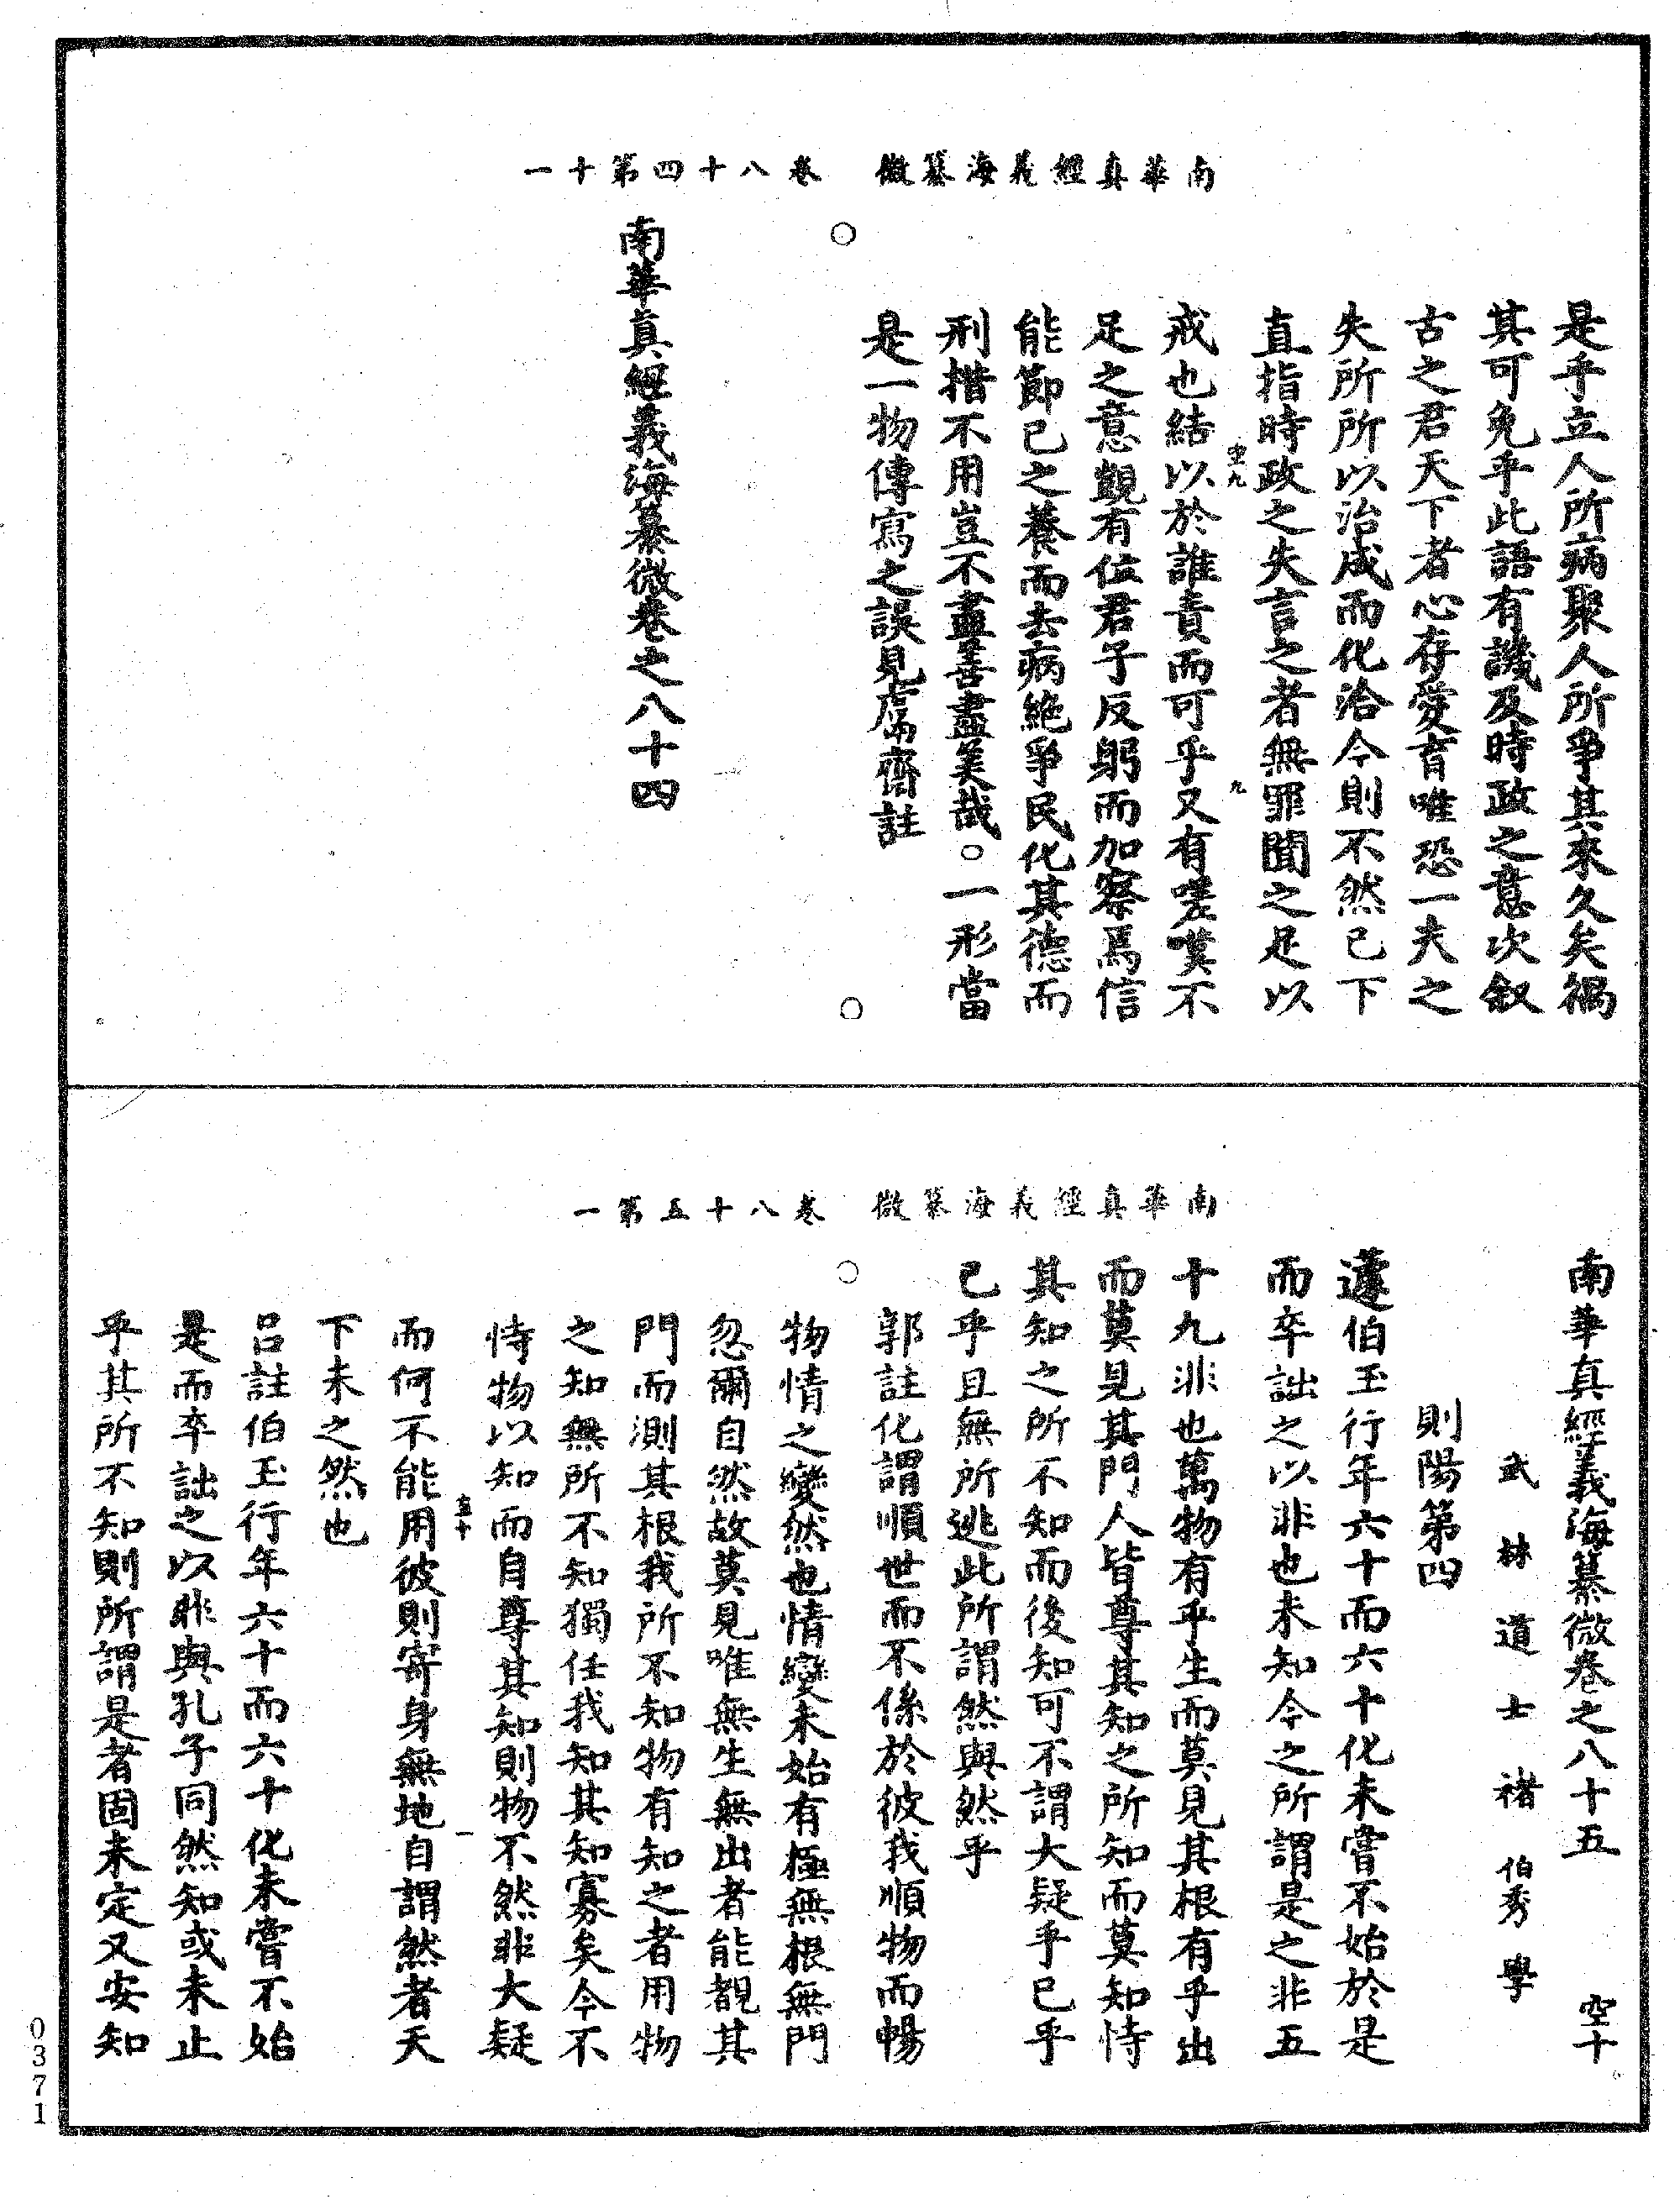 南華真經義海纂微　卷八十四第十一
是乎立人所病聚人所爭其來久矣禍
其可免乎此語有譏及時政之意次叙
古之君天下者心存愛育唯恐一夫之
失所所以治成而化洽今則不然已下
直指時政之失言之者無罪聞之足以
空九　九
戒也結以於誰責而可乎又有嗟嘆不
足之意觀有位君子反躬而加察焉信
能節已之養而去病絶爭民化其德而
刑措不用豈不盡善盡美哉○一形當
是一物傳寫之誤見鬳齋註
南華真經義海纂微卷之八十四
南華真經義海纂微　卷八十五第一
南華真經義海纂微卷之八十五　空十
武林道士褚伯秀學
則陽第四
蘧伯玉行年六十而六十化未嘗不始於是
而卒詘之以非也未知今之所謂是之非五
十九非也萬物有乎生而莫見其根有乎出
而莫見其門人皆尊其知之所知而莫知恃
其知之所不知而後知可不謂大疑乎已乎
已乎且無所逃此所謂然與然乎
郭註化謂順世而不係於彼我順物而暢
物情之變然也情變未始有極無根無門
忽爾自然故莫見唯無生無出者能覩其
門而測其根我所不知物有知之者用物
之知無所不知獨任我知其知寡矣今不
恃物以知而自尊其知則物不然非大疑
空十　一
而何不能用彼則寄身無地自謂然者天
下未之然也
吕註伯玉行年六十而六十化未嘗不始
是而卒詘之以非與孔子同然知或未止
乎其所不知則所謂是者固未定又安知
0371